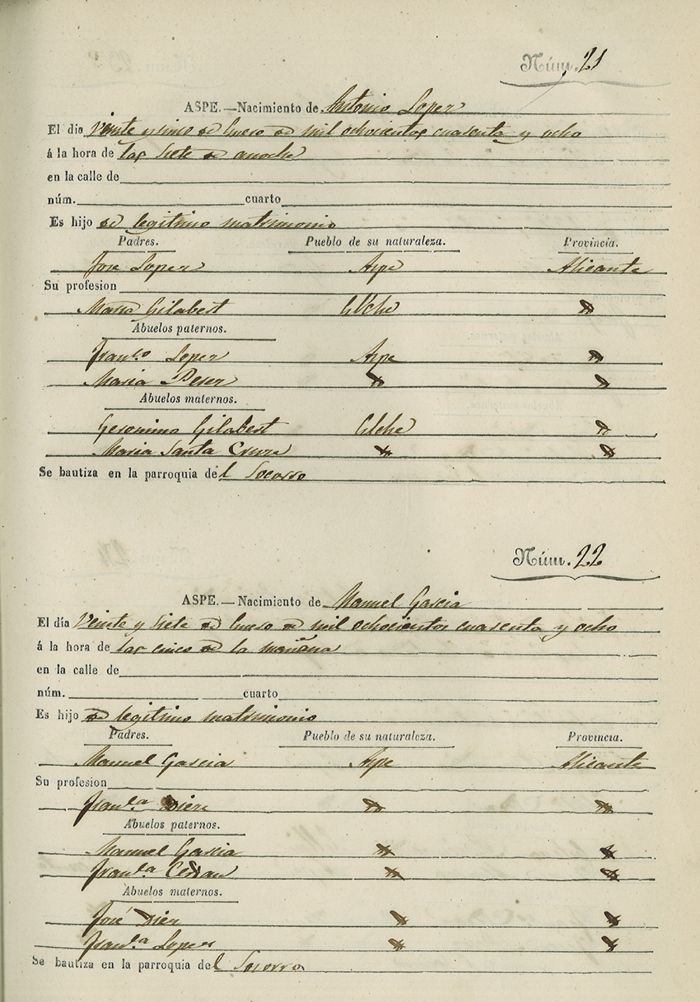 Núm. 21
ASPE.—Nacimiento de Antonio Lopez
El dia Veinte y sinco de Enero de mil ochocientos cuarenta y ocho
á la hora de las siete de anoche
en la calle de
núm. cuarto
Es hijo de legitimo matrimonio
Padres. Pueblo de su naturaleza. Provincia.
Jose Lopez Aspe Alicante
Su profesion
Maria Gilabert Elche
Abuelos paternos.
Franco Lopez Aspe
Maria Perez
Abuelos maternos.
Geronimo Gilabert Elche
Maria Santa Cruz
Se bautiza en la parroquia del Socorro
Núm. 22
ASPE.—Nacimiento de Manuel Garcia
El día Veinte y siete de Enero de mil ochocientos cuarenta y ocho
á la hora de las cinco de la mañana
en la calle de
núm. cuarto
Es hijo de legitimo matrimonio
Padres. Pueblo de su naturaleza. Provincia.
Manuel Garcia Aspe Alicante
Su profesion
Franca Diez
Abuelos paternos.
Manuel Garcia
Franca
Abuelos maternos.
José Diez
Franca Lopez
Se bautiza en la parroquia del Socorro